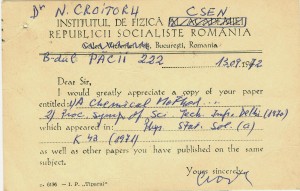 Dr N. CROITORU CSEN
INSTITUTUL DE FIZICĂ
REPUBLICII SOCIALISTE ROMÂNIA
București, Romania
B-dul PĂCII 222
13.09.1972
Dear Sir,
I would greatly appreciate a copy of your paper
entitled: 1) A Chemical Method...
2) Proc. Symp. of Sci. Tech. Delhi (1970)
which appeared in: Phys. Stat. Sol. (a)
K 43 (1971)
as well as other papers you have published on the same
subject.
Yours sincerely,
c. 0196 — I. P. „Tiparul”